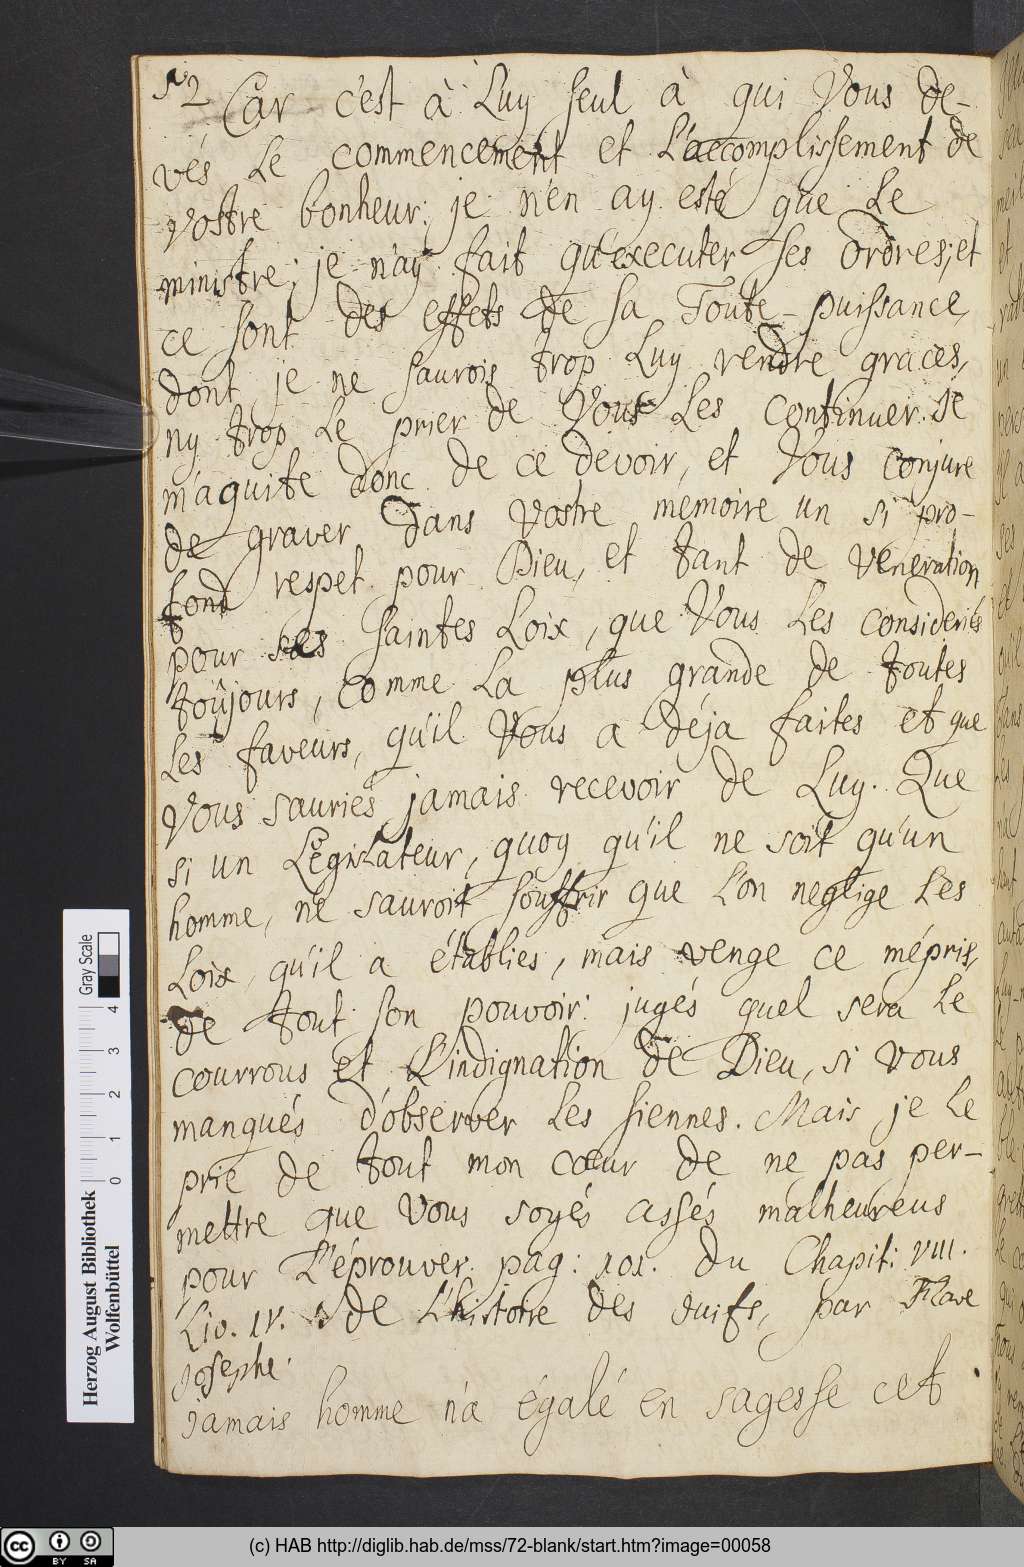 52 Car c'est à Luy seul à qui Vous de-
vés le commencement et L'accomplissement de
vostre bonheur; je n'en ay esté que le
ministre; je n'ay fait qu'executer ses Ordres; et
ce sont des effets de sa Toute-puissance,
dont je ne saurois trop Luy rendre graces,
ny trop le prier de Vous Les continuer. Je
m'aquite donc de ce devoir, et Vous conjure
de graver dans vostre memoire un si pro-
fond respet pour Dieu, et tant de veneration
pour ses saintes Loix, que Vous les considériés
toûjours, comme La plus grande de toutes
Les faveurs, qu'il Vous a déja faites et que
Vous sauriés jamais recevoir de Luy. Que
si un Législateur, quoy qu'il ne soit qu'un
homme, ne sauroit souffrir que L'on neglige Les
Loix, qu'il a établies, mais venge ce mépris,
de tout son pouvoir: jugés quel sera le
courrous et L'indignation de Dieu, si vous
manqués d'observer Les siennes. Mais je Le
prie de tout mon cœur de ne pas per-
mettre que Vous soyés assés malheureus
pour L'éprouver. pag: 101. du Chapit: VIII.
Liv. IV. de L'histoire des Juifs, par Flave
Josephe.
Jamais homme n'a égalé en sagesse cet
Herzog August Bibliothek
Wolfenbüttel
0 1 2 3 4
Gray Scale
cc BY SA
(c) HAB http://diglib.hab.de/mss/72-blank/start.htm?image=00058